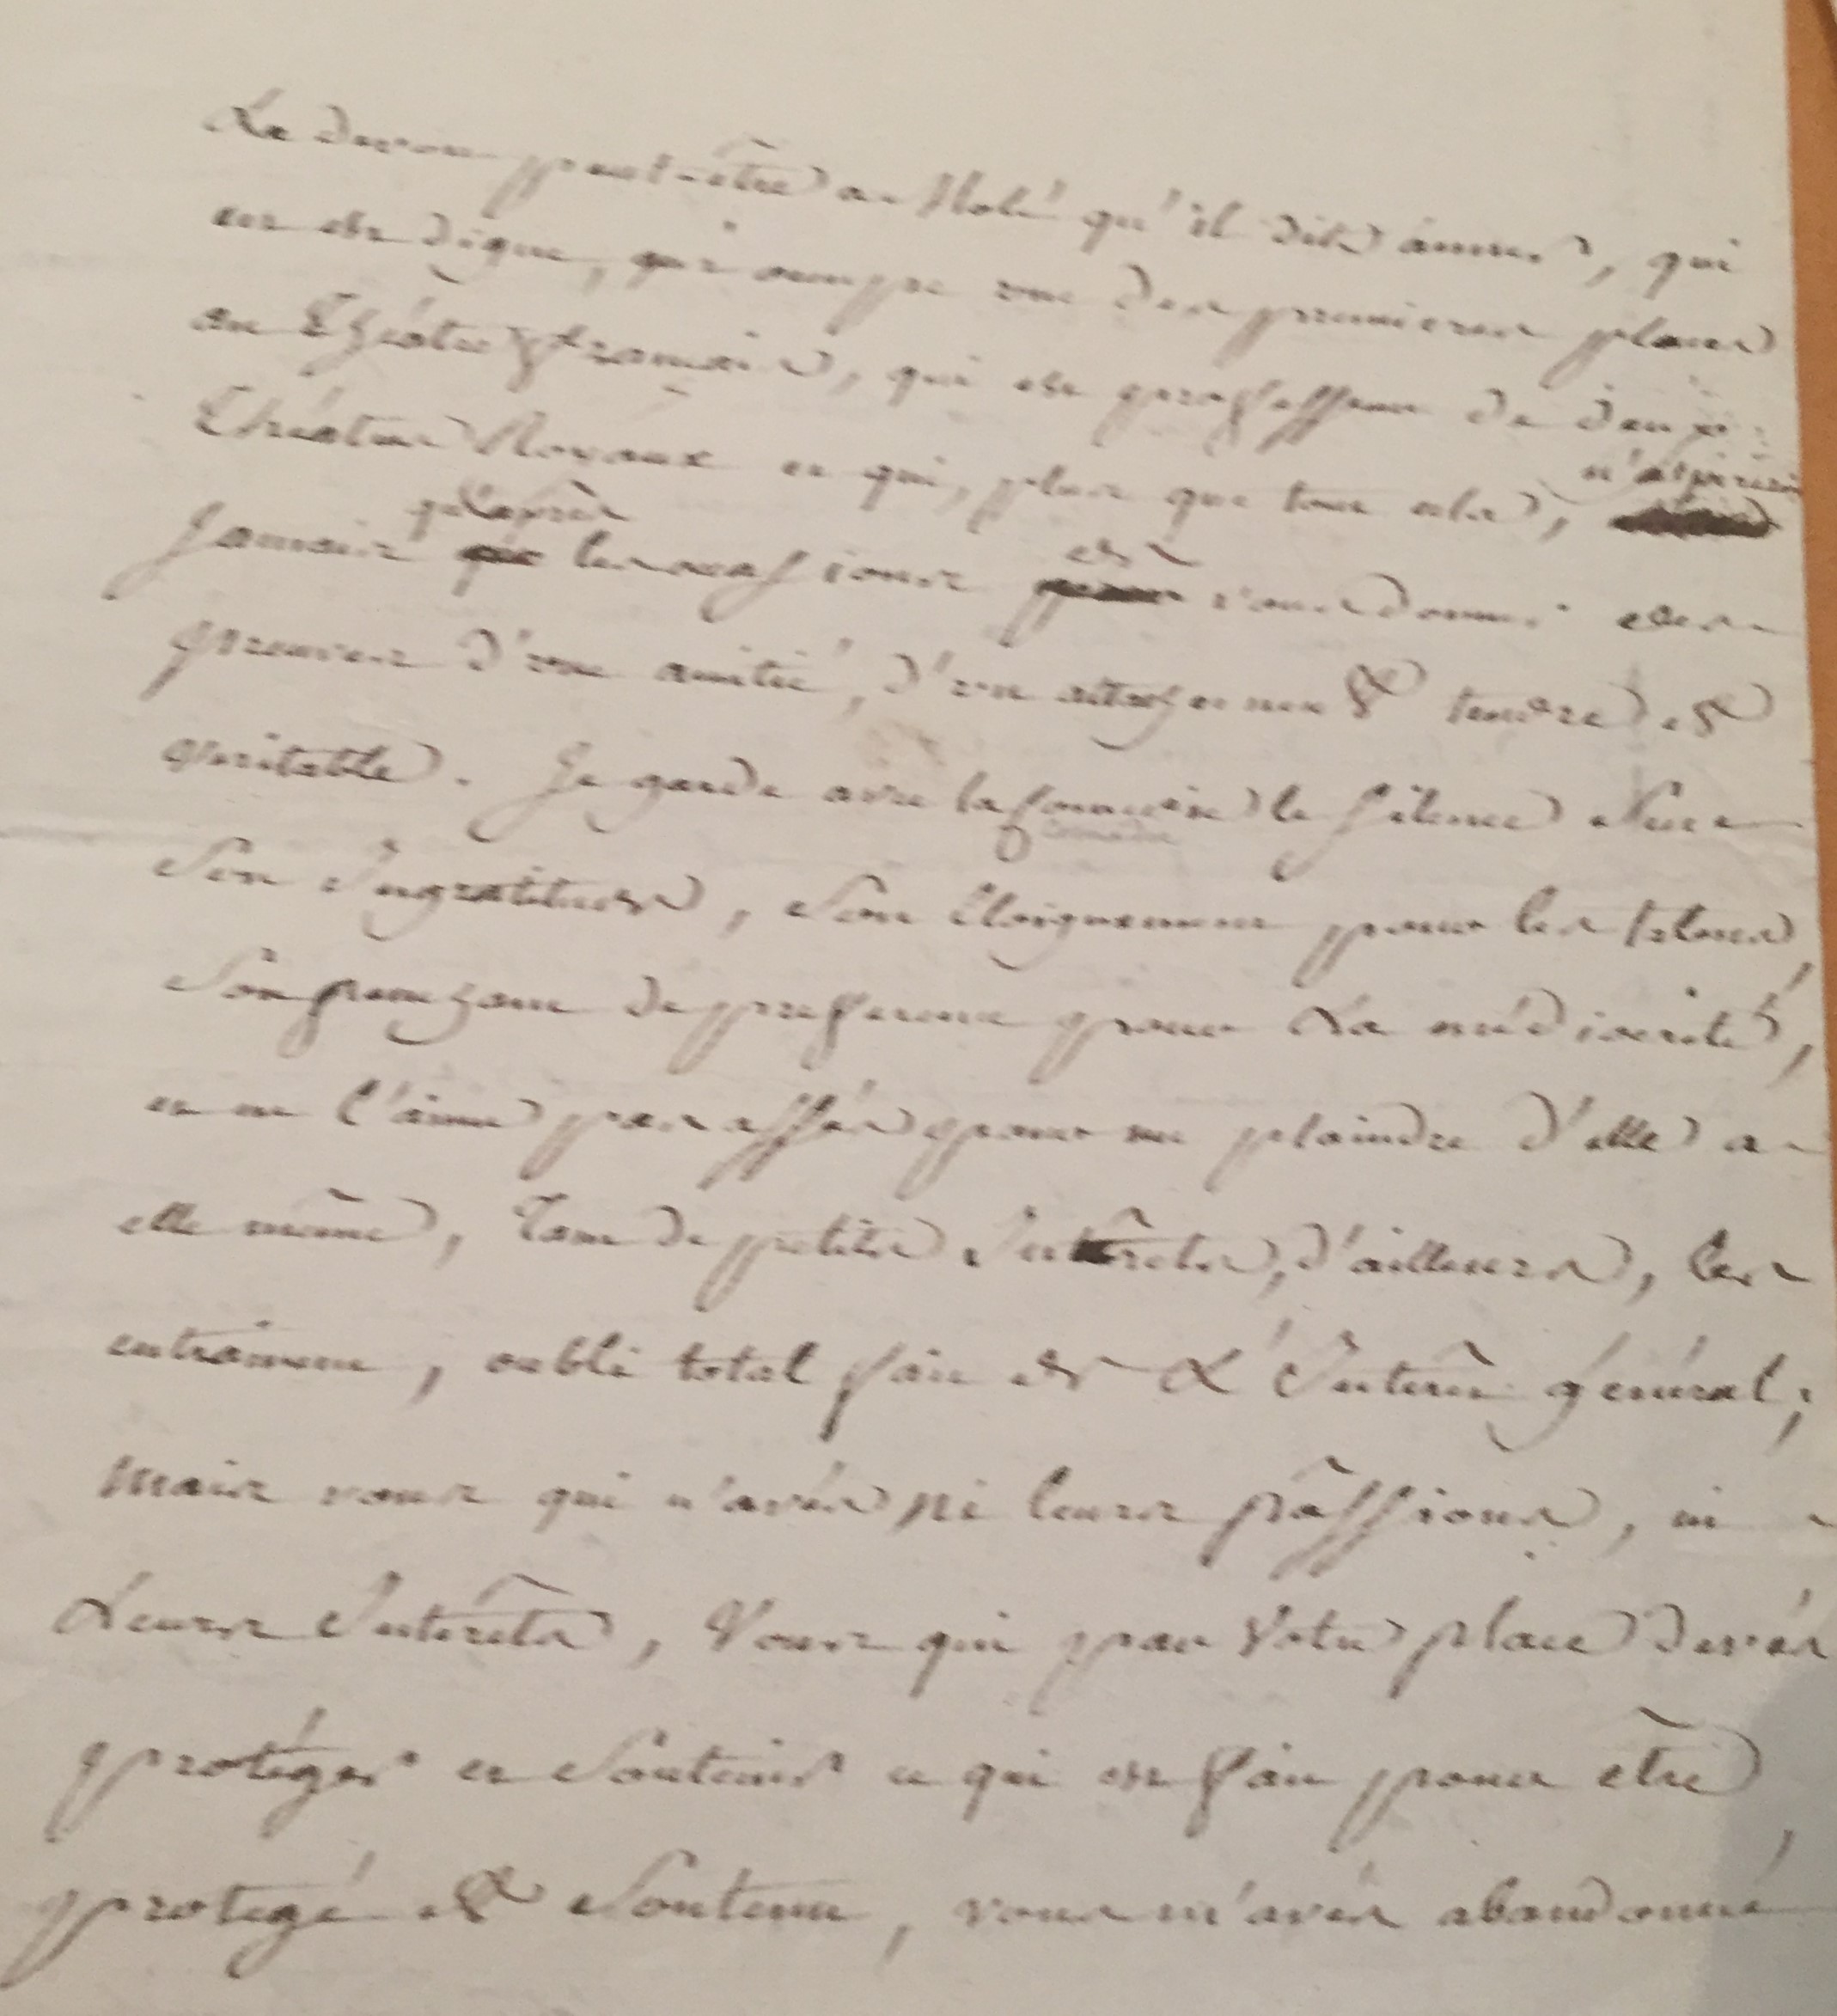 Le devoir peut-être a Molé qu'il dit aimer, qui
en est digne, qui occupe une des premieres places
au Théâtre français, qui est professeur de deux
Théâtres Royaux et qui, plus que tout cela, n'aspirera
Jamais qu'après les occasions de vous donner des
preuves d'une amitié, d'un attachement & tendre &
veritable. Je garde avec la Comedie le silence sur
Comedie
son Ingratitude, son Eloignement pour les talens,
son penchant de preference pour La médiocrité,
et ne l'aime pas assés pour me plaindre d'elle a
elle même, Tant de petits Intérêts, d'ailleurs, les
entrainent, oubli total fait de L'Intérêt général;
mais vous qui n'avés ni leurs pâssions, ni
Leurs Intérêts, Vous qui par Votre place devés
protéger et soutenir ce qui est fait pour être
protegé & soutenu, vous m'avés abandonné